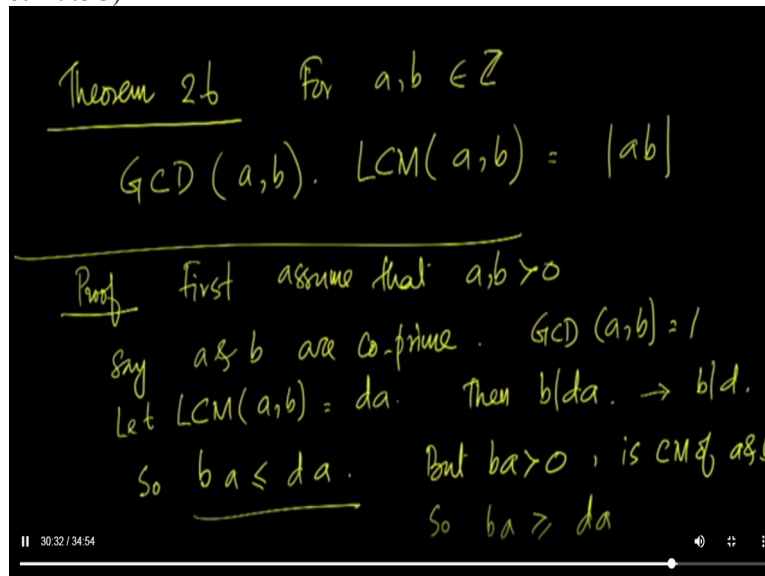 Theorem 26 For a,b ∈ ℤ
GCD(a,b). LCM(a,b) = |ab|
Proof First assume that a,b>0
Say a & b are co-prime. GCD(a,b)=1
Let LCM(a,b) = da. Then b|da. → b|d.
So ba ≤ da. But ba>0, is CM of a&
So ba ≥ da
30:32 / 34:54